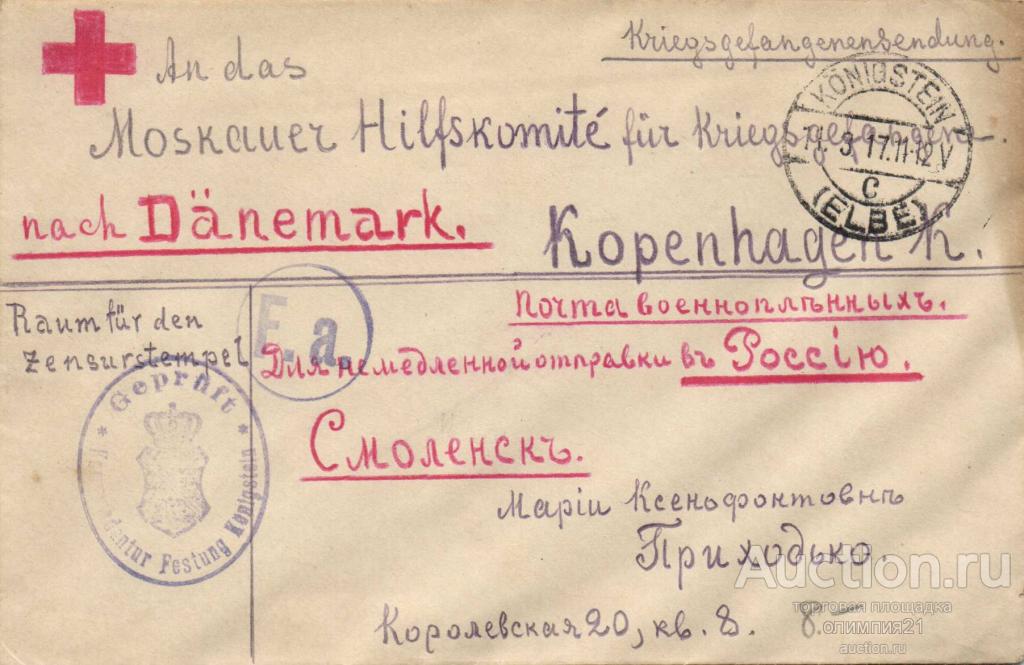 Kriegsgefangenensendung.
An das
Moskauer Hilfskomité für Kriegsgefangene
nach Dänemark. Kopenhagen K.
KÖNIGSTEIN
11. 3. 17. 11-12 V
C
(ELBE)
Raum für den
Zensurstempel
E. a.
Geprüft
Festung Königstein
Почта военноплѣнныхъ.
Для немедленной отправки въ Россію.
Смоленскъ.
Маріи Ксенофонтовнѣ
Приходько.
Королевская 20, кв. 8. 8.—
Auction.ru
торговая площадка
олимпия21
auction.ru